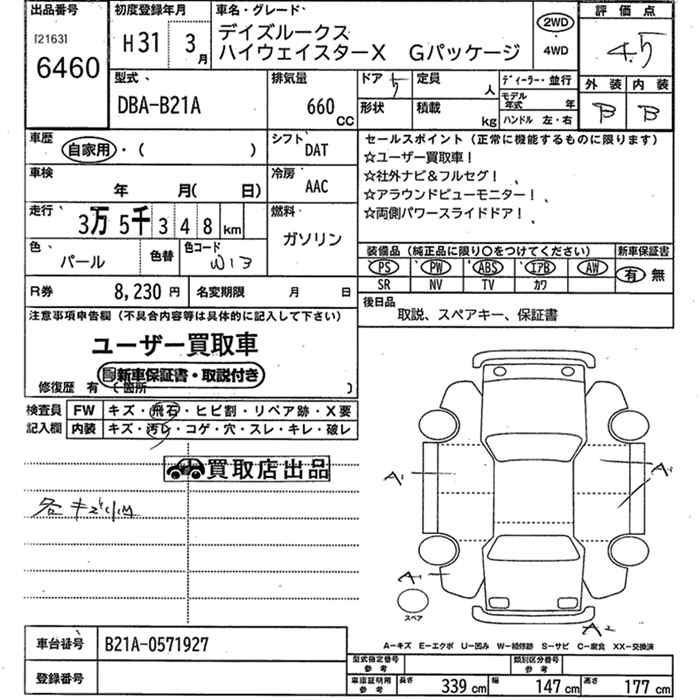 出品番号
[2163]
6460
初度登録年月
H31 3月
車名・グレード
デイズルークス
ハイウェイスターX Gパッケージ
2WD
・
4WD
評価点
4.5
外装 内装
B B
型式
DBA-B21A
排気量
660 CC
ドア 5
形状
定員 人
積載 kg
ディーラー・並行
モデル年式 年
ハンドル 左・右
車歴
自家用・( )
シフト
DAT
車検
年 月( 日)
冷房
AAC
走行
3万5千348km
燃料
ガソリン
色
パール
色替
色コード
W13
R券 8,230円 名変期限 月 日
セールスポイント(正常に機能するものに限ります)
☆ユーザー買取車!
☆社外ナビ&フルセグ!
☆アラウンドビューモニター!
☆両側パワースライドドア!
装備品(純正品に限り○をつけてください)
PS PW ABS エアB AW
SR NV TV カワ
新車保証書
有 無
後日品
取説、スペアキー、保証書
注意事項申告欄(不具合内容等は具体的に記入して下さい)
ユーザー買取車
新車保証書・取説付き
修復歴 有 (箇所 )
検査員
記入欄
FW キズ・飛石・ヒビ割・リペア跡・X要
内装 キズ・汚レ・コゲ・穴・スレ・キレ・破レ
買取店出品
各キズ小凹
A1
A1
A
A2
スペア
A−キズ E−エクボ U−凹み W−補修跡 S−サビ C−腐食 XX−交換済
車台番号 B21A-0571927
登録番号
型式指定番号
参考
類別区分番号
参考
車庫証明用
参考
長さ 339cm 幅 147cm 高さ 177cm